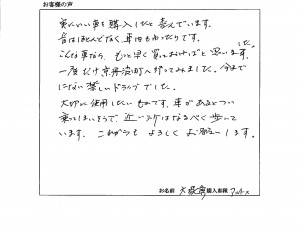 お客様の声
実にいい車を購入したと喜んでいます。
音はほとんどなく、車内もゆったりです。
こんな車なら、もっと早く買っておけばと思いました。
一度だけ京丹波町へ行ってみました。今まで
にない楽しいドライブでした。
大切に使用したいものです。車があるとつい
乗ってしまいそうで、近い所はなるべく歩いて
います。これからもよろしくお願いします。
お名前 購入車種